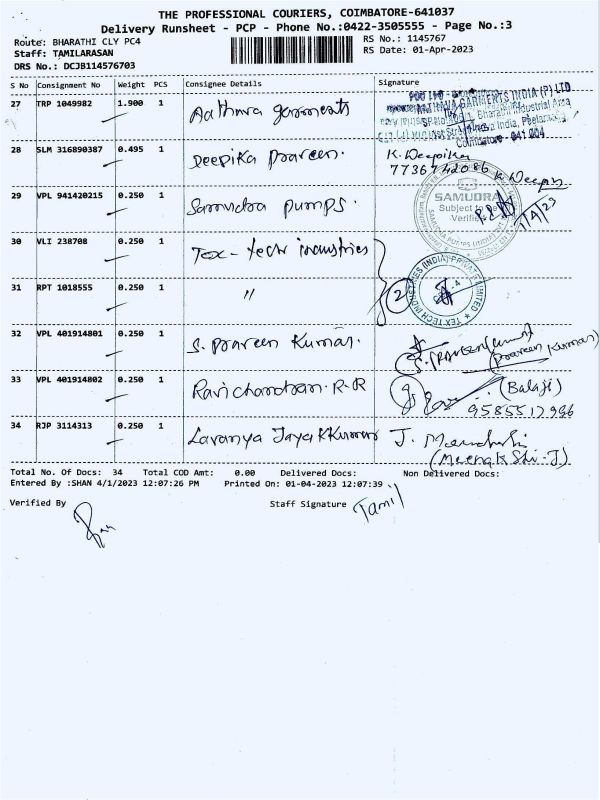 THE PROFESSIONAL COURIERS, COIMBATORE-641037
Delivery Runsheet - PCP - Phone No.:0422-3505555 - Page No.:3
Route: BHARATHI CLY PC4
RS No.: 1145767
Staff: TAMILARASAN
RS Date: 01-Apr-2023
DRS No.: DCJB114576703
S No Consignment No Weight PCS Consignee Details Signature
27 TRP 1049982 1.900 1 Aathava garments
GARMENTS INDIA (P) LTD
Bharathi Industrial Area
India, Peelamedu
Coimbatore - 641 004
28 SLM 316890387 0.495 1 Deepika praveen. K. Deepika
7736742086 K Deepij
29 VPL 941420215 0.250 1 Samudra pumps.
SAMUDRA
Subject to be
Verified
1/4/23
30 VLI 238708 0.250 1 Tex-tech industries
31 RPT 1018555 0.250 1 "
2
TEX TECH INDUSTRIES (INDIA) PRIVATE LIMITED
32 VPL 401914801 0.250 1 S. praveen Kumar.
(praveen Kumar)
33 VPL 401914802 0.250 1 Ravichandran. R-R (Balaji)
9585517996
34 RJP 3114313 0.250 1 Lavanya Jaya KKumar J. Meenakshi
(Meenakshi-J)
Total No. Of Docs: 34 Total COD Amt: 0.00 Delivered Docs: Non Delivered Docs:
Entered By :SHAN 4/1/2023 12:07:26 PM Printed On: 01-04-2023 12:07:39
Verified By
Staff Signature Tamil